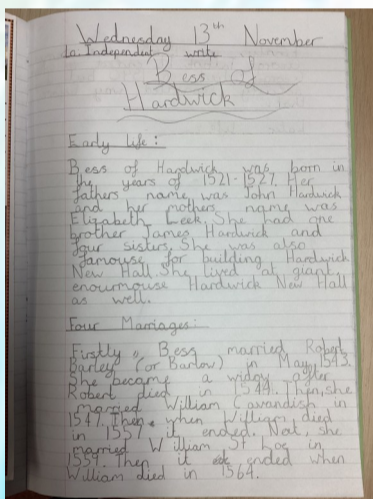 Wednesday 13th November
Lo. Independent write
Bess of
Hardwick
Early life:
Bess of Hardwick was born in
the years of 1521-1527. Her
fathers name was John Hardwick
and her mothers name was
Elizabeth Leek. She had one
brother James Hardwick and
four sisters. She was also
famouse for building Hardwick
New Hall. She lived at giant,
enourmouse Hardwick New Hall
as well.
Four Marriages:
Firstly, Bess married Robert
Barley (or Barlow) in May, 1543.
She became a widow after
Robert died in 1544. Then, she
married William Cavandish in
1547. Then, when William died
in 1557 it ended. Next, she
married William St Loe in
1559. Then it ended when
William died in 1564.